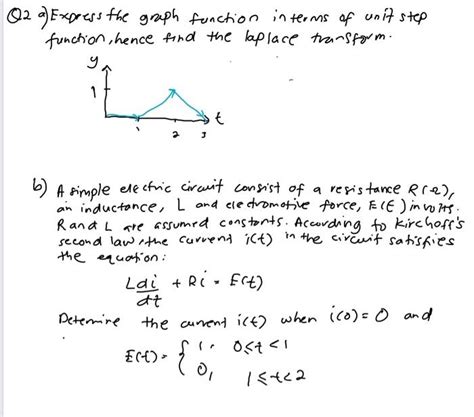 Q2 a) Express the graph function in terms of unit step
function, hence find the laplace transform.
y
1
t
1 2 3
b) A simple electric circuit consist of a resistance R(Ω),
an inductance, L and electromotive force, E(t) in volts.
R and L are assumed constants. According to Kirchoff's
second law, the current i(t) in the circuit satisfies
the equation:
L di/dt + Ri = E(t)
Determine the current i(t) when i(0) = 0 and
E(t) = { 1, 0 ≤ t < 1
0, 1 ≤ t < 2